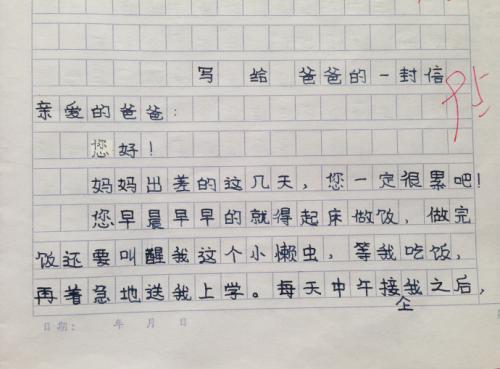 写给爸爸的一封信
95
亲爱的爸爸：
您好！
妈妈出差的这几天，您一定很累吧！
您早晨早早的就得起床做饭，做完
饭还要叫醒我这个小懒虫，等我吃饭，
再着急地送我上学。每天中午接我之后，
日期： 年 月 日